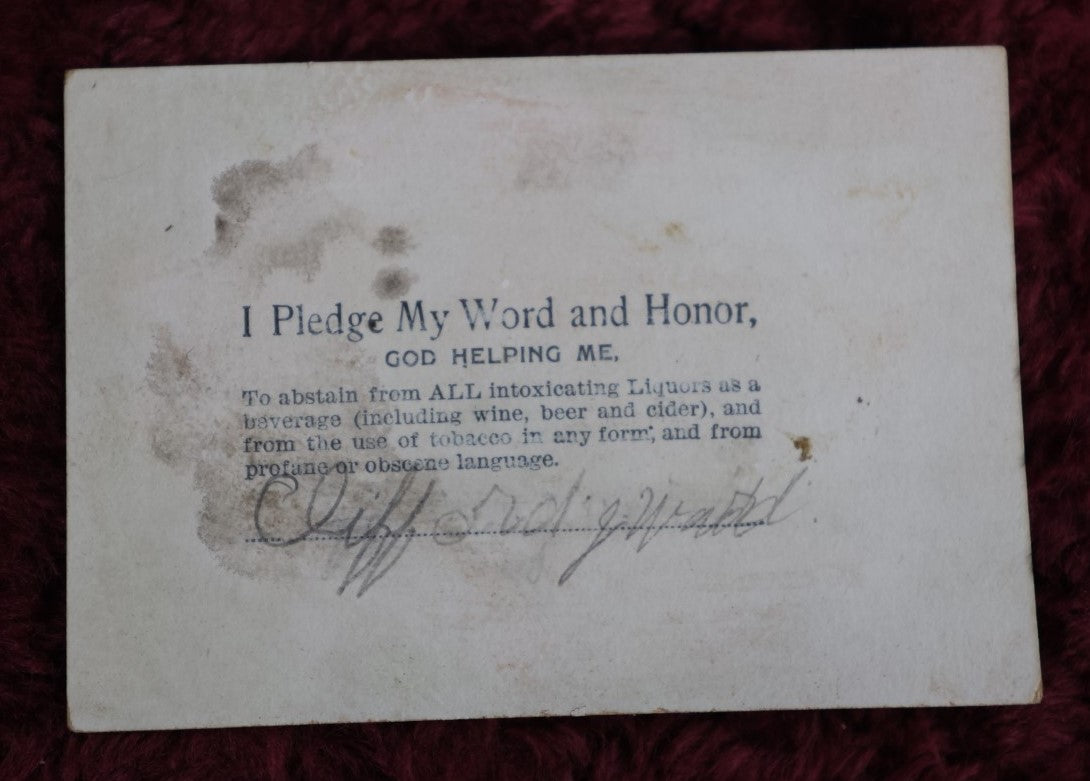 I Pledge My Word and Honor,
GOD HELPING ME,
To abstain from ALL intoxicating Liquors as a
beverage (including wine, beer and cider), and
from the use of tobacco in any form, and from
profane or obscene language.
Clifford